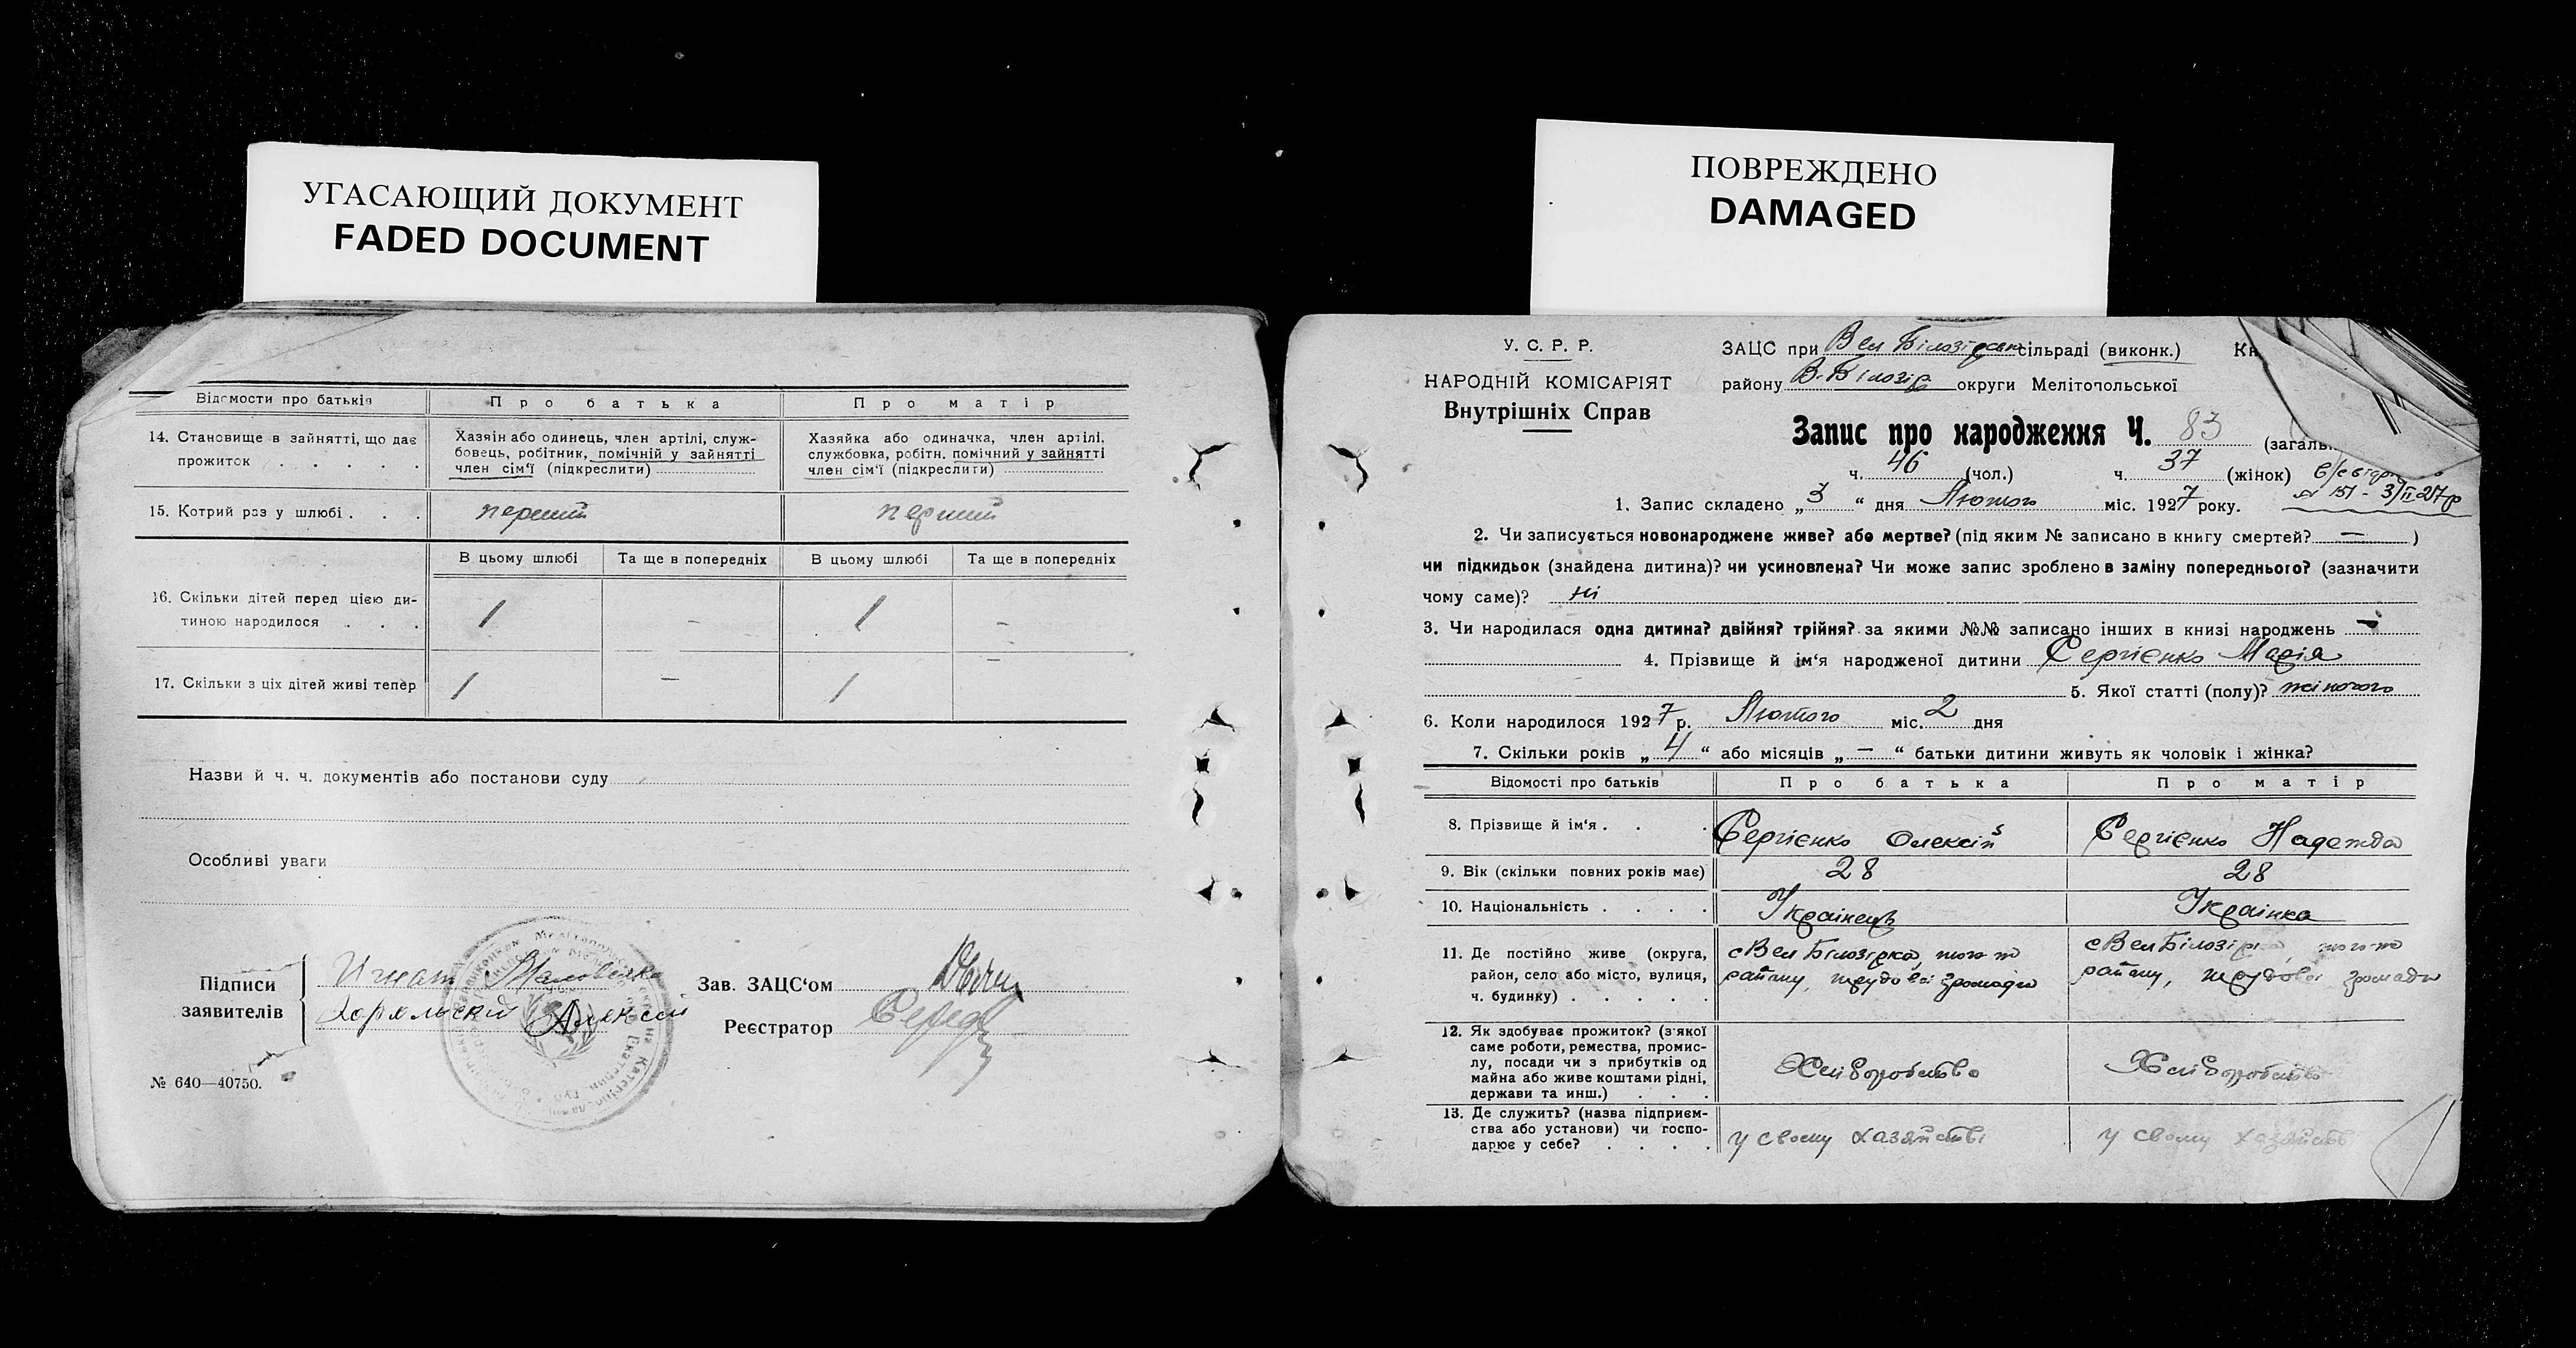 УГАСАЮЩИЙ ДОКУМЕНТ
FADED DOCUMENT
Відомости про батьків
Про батька
Про матір
14. Становище в зайнятті, що дає прожиток . . . . .
Хазяін або одинець, член артілі, служ-
бовець, робітник, помічній у зайнятті
член сім'ї (підкреслити)
Хазяйка або одиначка, член артілі,
службовка, робітн. помічний у зайнятті
член сім'ї (підкреслити)
15. Котрий раз у шлюбі . . .
перший
перший
В цьому шлюбі
Та ще в попередніх
В цьому шлюбі
Та ще в попередніх
16. Скільки дітей перед цією ди-
тиною народилося . . .
1 - 1 -
17. Скільки з ціх дітей живі тепер
1 - 1 -
Назви й ч. ч. документів або постанови суду
Особливі уваги
Підписи
заявителів
Игнат
Алексей
Зав. ЗАЦС'ом
Реєстратор
№ 640—40750.
ПОВРЕЖДЕНО
DAMAGED
У. С. Р. Р.
НАРОДНІЙ КОМІСАРІЯТ
Внутрішніх Справ
ЗАЦС при Вел Білозірсько сільраді (виконк.)
району В-Білозір округи Мелітопольської
Запис про народження Ч. 83 (загаль
ч. 46 (чол.) ч. 37 (жінок)
151 - 3/II 27р
1. Запис складено „3“ дня Лютого міс. 1927 року.
2. Чи записується новонароджене живе? або мертве? (під яким № записано в книгу смертей? — )
чи підкидьок (знайдена дитина)? чи усиновлена? Чи може запис зроблено в заміну попереднього? (зазначити
чому саме)? ні
3. Чи народилася одна дитина? двійня? трійня? за якими №№ записано інших в книзі народжень —
4. Прізвище й ім'я народженої дитини Сергієнко Марія
5. Якої статті (полу)? жіночого
6. Коли народилося 1927 р. Лютого міс. 2 дня
7. Скільки років „4“ або місяців „—“ батьки дитини живуть як чоловік і жінка?
Відомості про батьків
Про батька
Про матір
8. Прізвище й ім'я . . .
Сергієнко Олексій
Сергієнко Надежда
9. Вік (скільки повних років має)
28
28
10. Національність . . . .
Українець
Українка
11. Де постійно живе (округа,
район, село або місто, вулиця,
ч. будинку) . . . . .
с Вел Білозірка, того ж
району, трудової громади
с Вел Білозірка, того ж
району, трудової громади
12. Як здобуває прожиток? (з'якої
саме роботи, ремества, промис-
лу, посади чи з прибутків од
майна або живе коштами рідні,
держави та инш.) . . .
Хліборобство
Хліборобство
13. Де служить? (назва підприєм-
ства або установи) чи госпо-
дарює у себе? . . . .
у свому хазяйстві
у свому хазяйстві